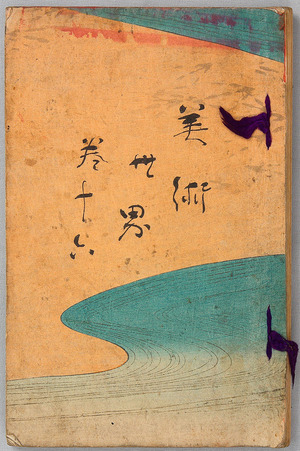 美術
世界
巻十六